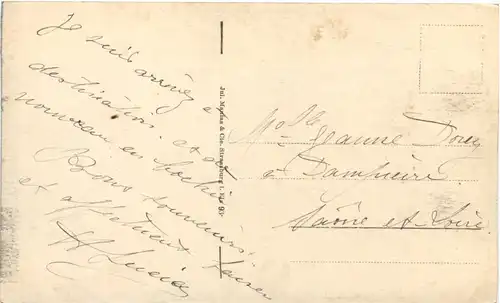 Je suis arrivée à
destination. et de
nouveau en
Bons souvenirs
et affectueux baisers
Jul. Manias & Cie. Strassburg i. Els.
Mlle Jeanne
à Dampierre
Saône et Loire